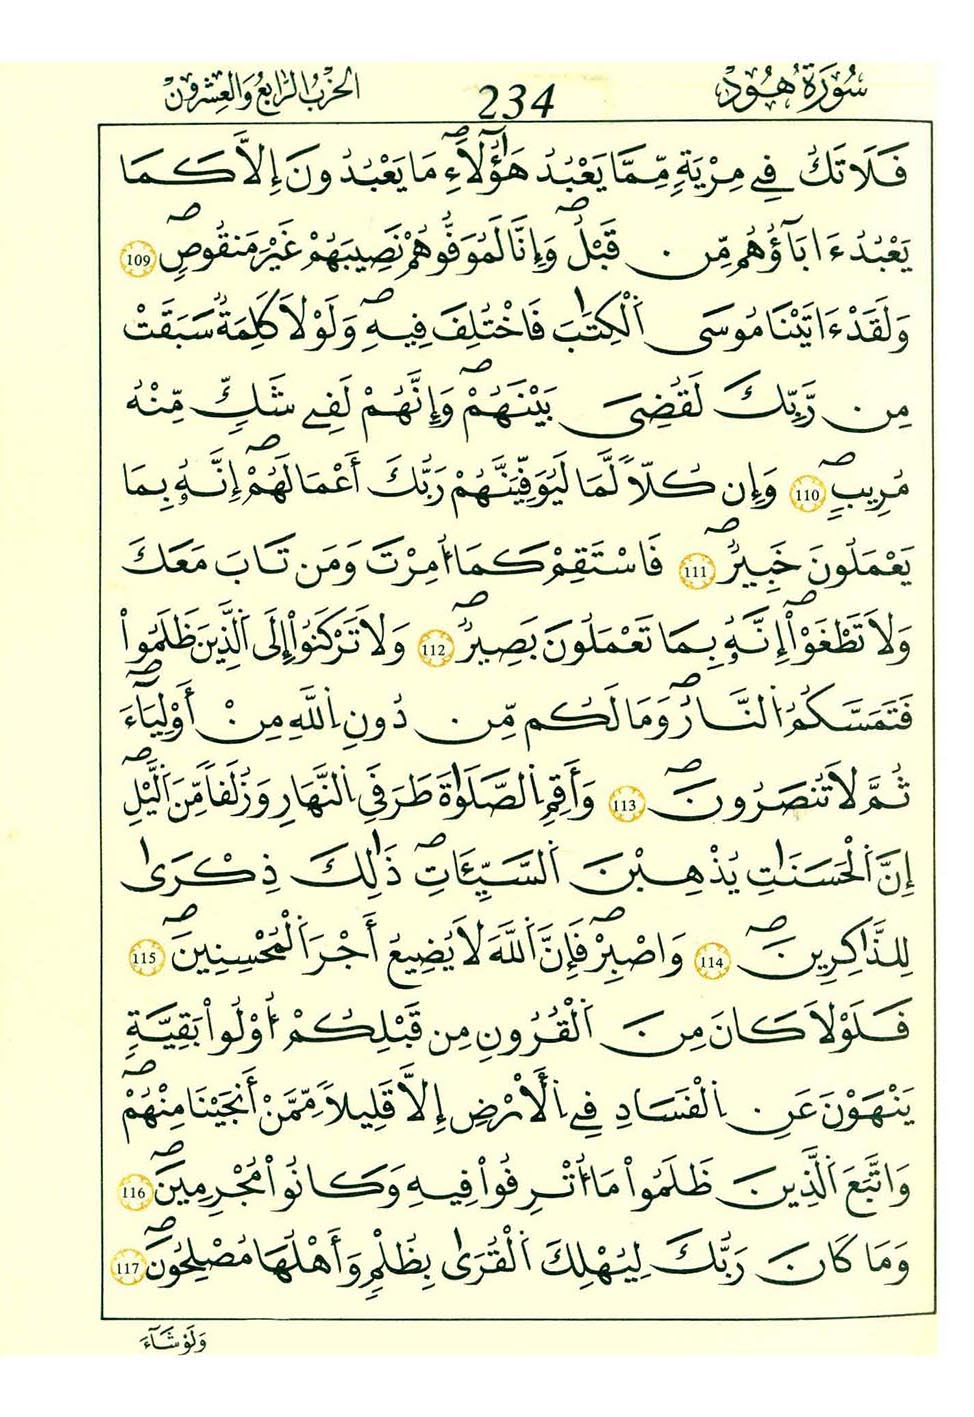 سُورَةُ هُودٍ 234 الحِزْبُ الرَّابِعُ وَالعِشْرُونَ
فَلَا تَكُ فِے مِرْيَةٖ مِّمَّا يَعْبُدُ هَٰٓؤُلَآءِۖ مَا يَعْبُدُونَ إِلَّا كَمَا
يَعْبُدُ ءَابَآؤُهُم مِّن قَبْلُۖ وَإِنَّا لَمُوَفُّوهُمْ نَصِيبَهُمْ غَيْرَ مَنقُوصٖۖ 109
وَلَقَدْ ءَاتَيْنَا مُوسَى اَ۬لْكِتَٰبَ فَاخْتُلِفَ فِيهِۖ وَلَوْلَا كَلِمَةٞ سَبَقَتْ
مِن رَّبِّكَ لَقُضِيَ بَيْنَهُمْۖ وَإِنَّهُمْ لَفِے شَكّٖ مِّنْهُ
مُرِيبٖۖ 110 وَإِن كُلّاٗ لَّمَا لَيُوَفِّيَنَّهُمْ رَبُّكَ أَعْمَالَهُمْۖ إِنَّهُۥ بِمَا
يَعْمَلُونَ خَبِيرٞۖ 111 فَاسْتَقِمْ كَمَا أُمِرْتَ وَمَن تَابَ مَعَكَ
وَلَا تَطْغَوْاْۖ إِنَّهُۥ بِمَا تَعْمَلُونَ بَصِيرٞۖ 112 وَلَا تَرْكَنُواْ إِلَى اَ۬لذِينَ ظَلَمُواْ
فَتَمَسَّكُمُ اُ۬لنَّارُۖ وَمَا لَكُم مِّن دُونِ اِ۬للَّهِ مِنْ أَوْلِيَآءَۖ
ثُمَّ لَا تُنصَرُونَۖ 113 وَأَقِمِ اِ۬لصَّلَوٰةَ طَرَفَيِ اِ۬لنَّهَارِ وَزُلَفاٗ مِّنَ اَ۬ليْلِۖ
إِنَّ اَ۬لْحَسَنَٰتِ يُذْهِبْنَ اَ۬لسَّيِّـَٔاتِۖ ذَٰلِكَ ذِكْرَىٰ
لِلذَّٰكِرِينَۖ 114 وَاصْبِرْۖ فَإِنَّ اَ۬للَّهَ لَا يُضِيعُ أَجْرَ اَ۬لْمُحْسِنِينَۖ 115
فَلَوْلَا كَانَ مِنَ اَ۬لْقُرُونِ مِن قَبْلِكُمْ أُوْلُواْ بَقِيَّةٖ
يَنْهَوْنَ عَنِ اِ۬لْفَسَادِ فِے اِ۬لْأَرْضِ إِلَّا قَلِيلاٗ مِّمَّنْ أَنجَيْنَا مِنْهُمْۖ
وَاتَّبَعَ اَ۬لذِينَ ظَلَمُواْ مَا أُتْرِفُواْ فِيهِ وَكَانُواْ مُجْرِمِينَۖ 116
وَمَا كَانَ رَبُّكَ لِيُهْلِكَ اَ۬لْقُرَىٰ بِظُلْمٖ وَأَهْلُهَا مُصْلِحُونَۖ 117
وَلَوْ شَآءَ